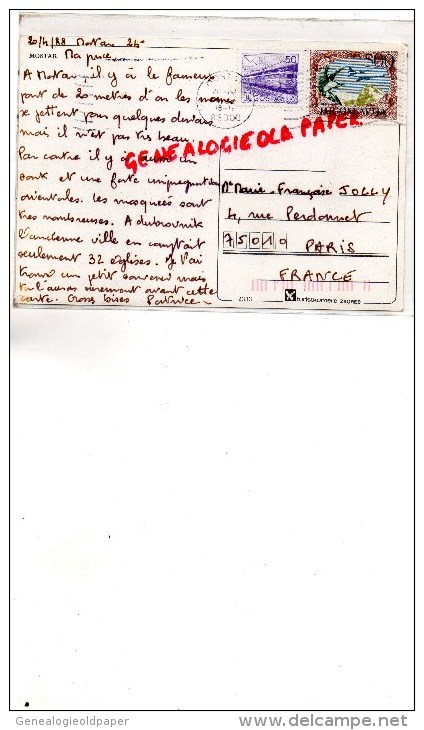 20/4/88 Mostar 24°
MOSTAR Ma puce
A Mostar, il y à le fameux
pont de 20 mètres d'où les
se jettent pour quelques dinars
mais il n'est pas très beau.
Par contre il y à aussi un
souk et une forte
orientales. Les mosquées sont
très nombreuses. A dubrovnik
l'ancienne ville en comptait
seulement 32 églises. Je t'ai
trouvé un petit souvenir mais
tu l'auras surement avant cette
carte. Gross bises Patrice
50
JUGOSLAVIJA
88000
GENEALOGIE OLD PAPER
Marie-Françoise JOLLY
4, rue Perdonnet
75010 PARIS
FRANCE
turistkomerc ZAGREB
Genealogieoldpaper
www.delcampe.net